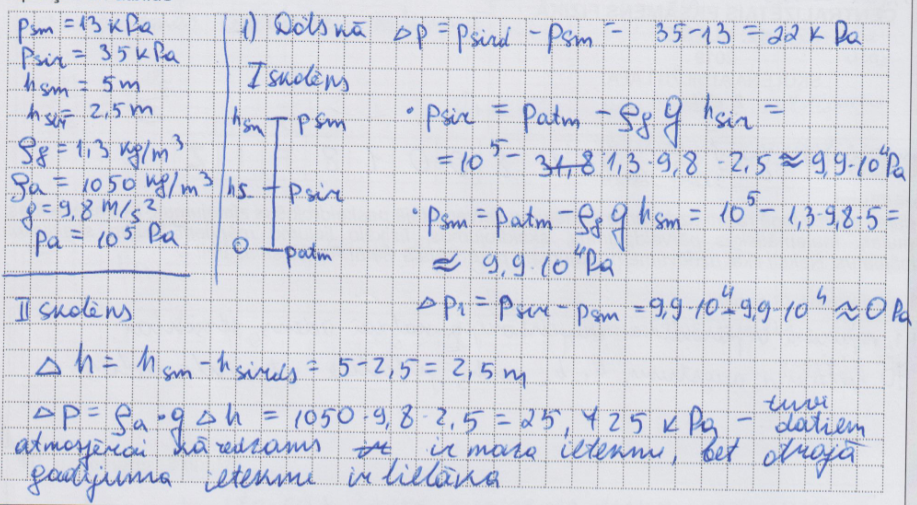 psm = 13 kPa
psir = 35 kPa
hsm = 5 m
hsir = 2,5 m
ρg = 1,3 kg/m³
ρa = 1050 kg/m³
g = 9,8 m/s²
pa = 10⁵ Pa
1) Dotskā Δp = psird - psm = 35-13 = 22 kPa
I skolēns
hsm psm
hs psir
0 patm
• psir = patm - ρg g hsir =
= 10⁵ - 31,8 1,3·9,8 · 2,5 ≈ 9,9·10⁴ Pa
• psm = patm - ρg g hsm = 10⁵ - 1,3·9,8·5 =
≈ 9,9·10⁴ Pa
Δp1 = psir - psm = 9,9·10⁴ - 9,9·10⁴ ≈ 0 Pa
II skolēns
Δh = hsm - hsirds = 5-2,5 = 2,5 m
Δp = ρa·g Δh = 1050·9,8·2,5 = 25,725 kPa -
datiem
atmosfērai ir maza ietekme, bet otrajā
gadījumā ietekme ir lielāka